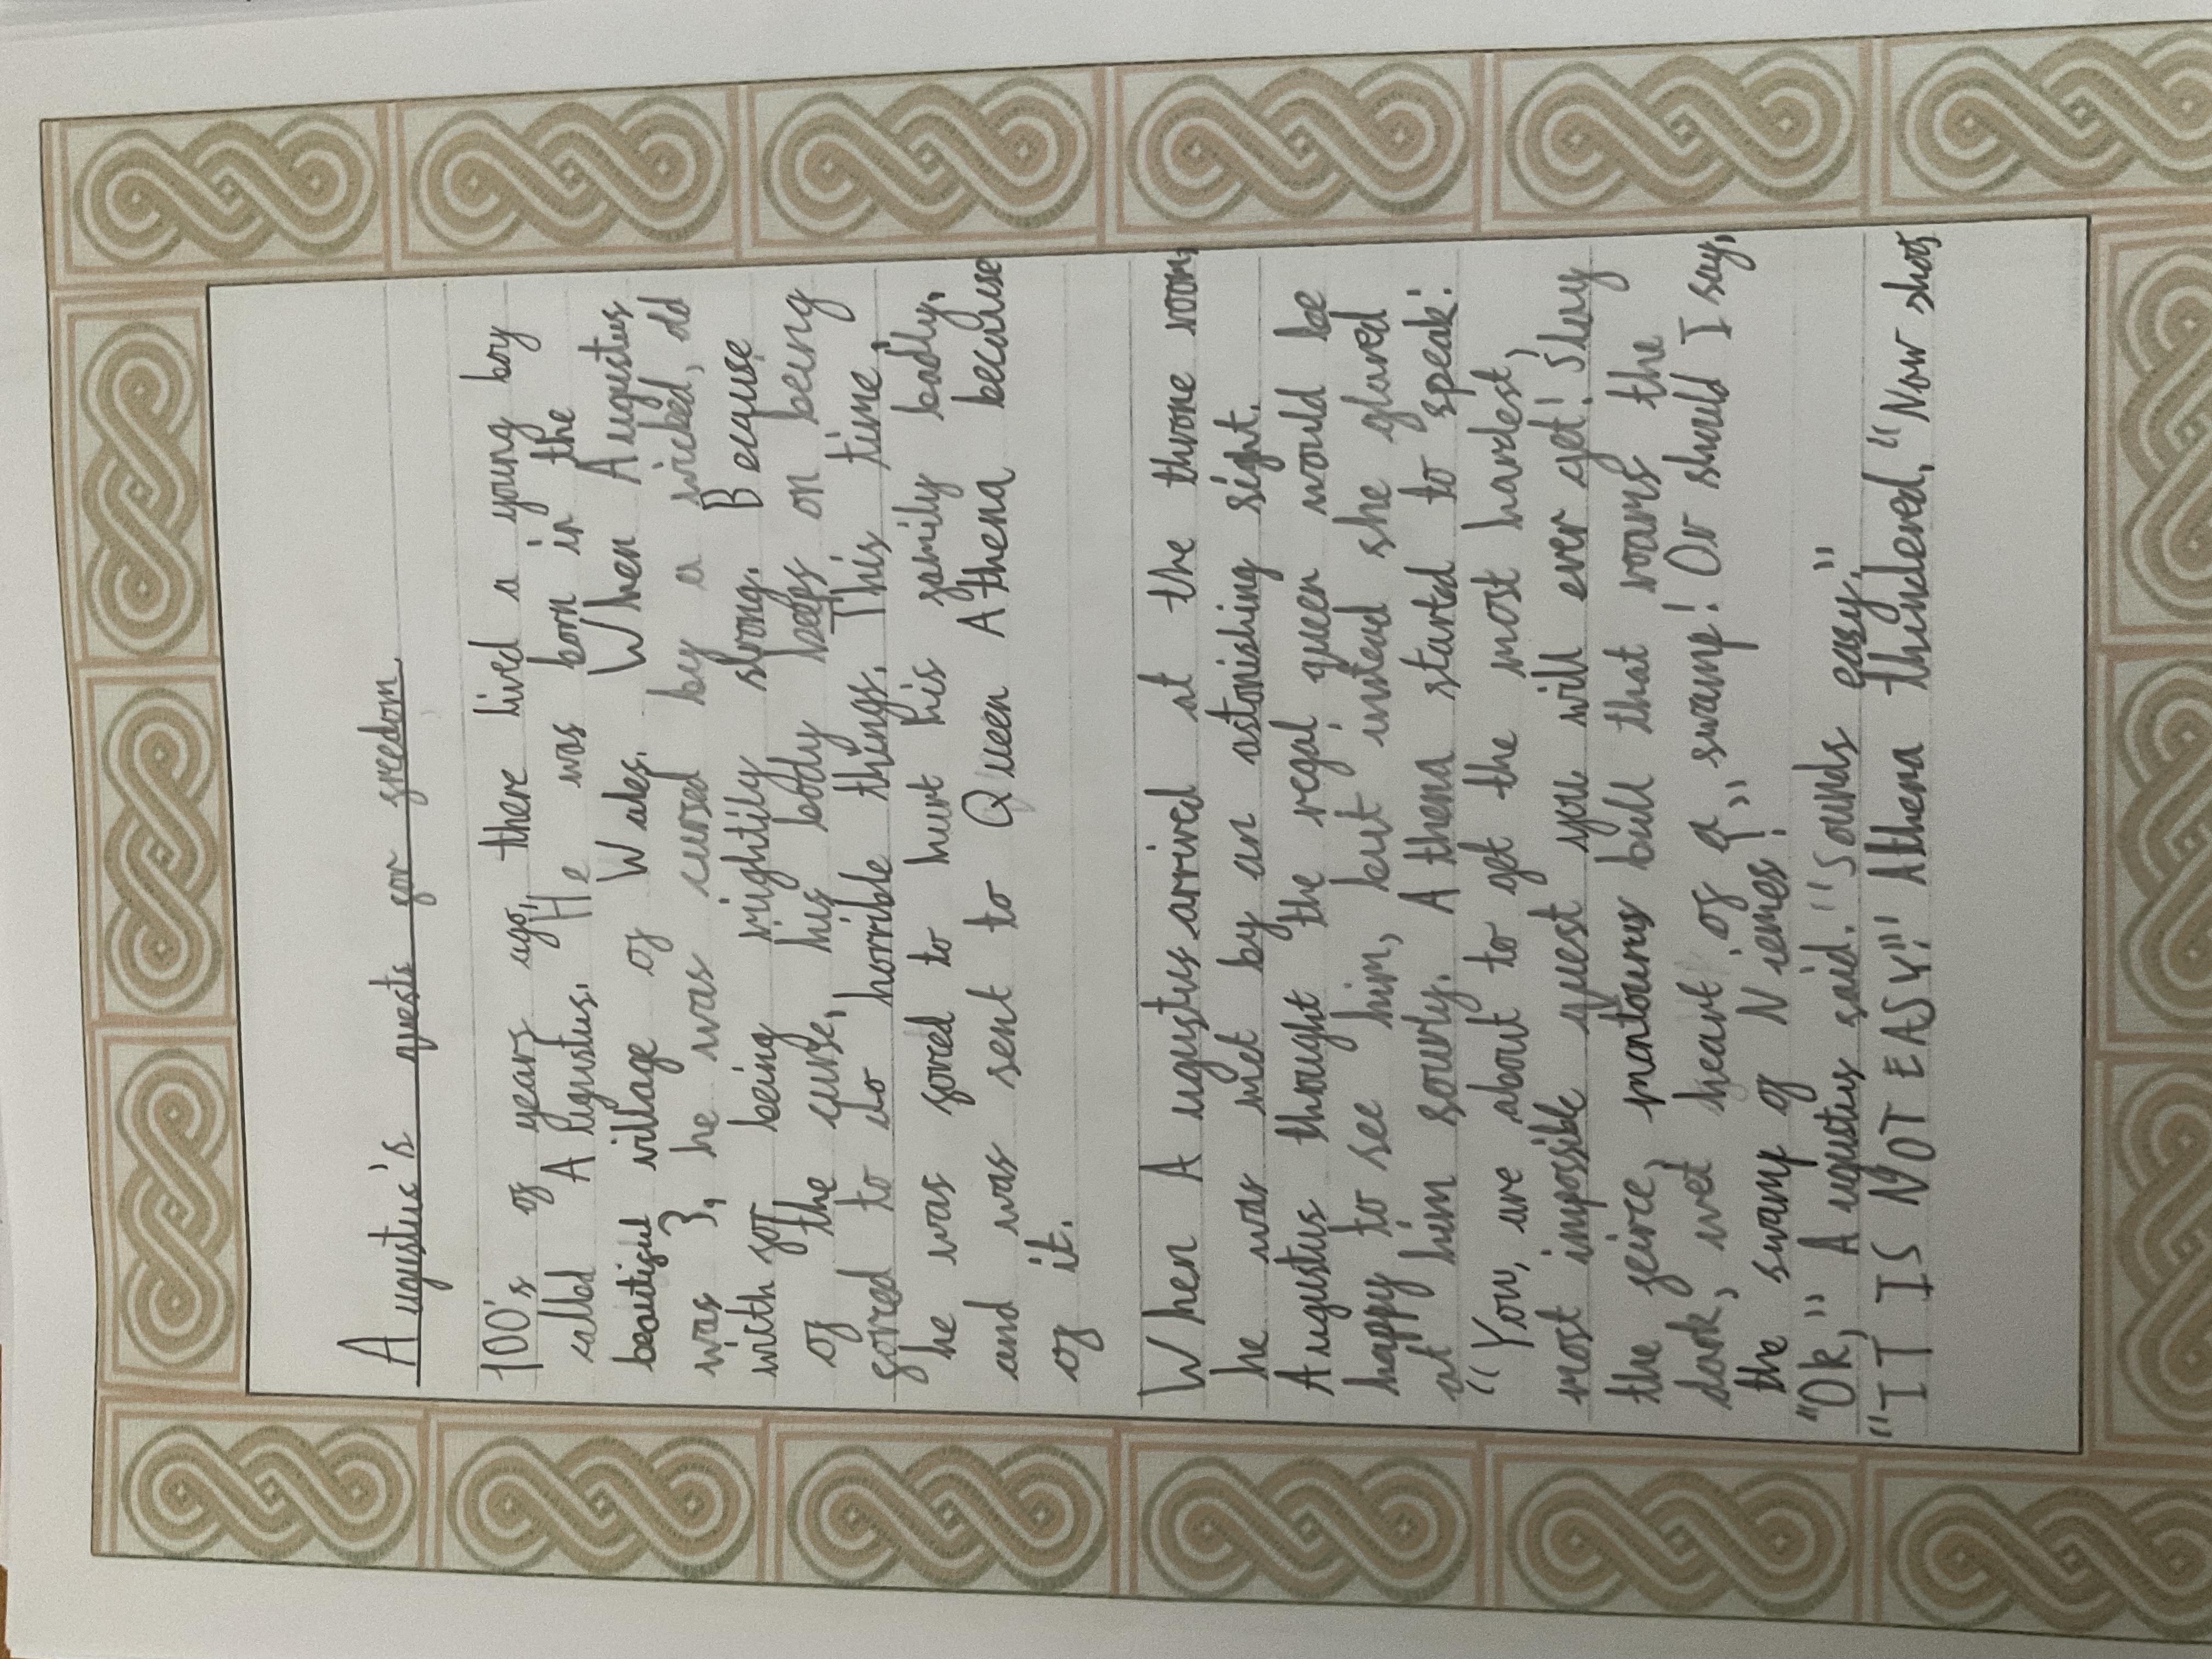 Augustus's quests for freedom.
100's of years ago, there lived a young boy
called Augustus. He was born in the
beautiful village of Wales. When Augustus
was 3, he was cursed by a wicked, old
with for being mightily strong. Because
of the curse, his body keeps on being
forced to do horrible things. This time,
he was forced to hurt his family badly,
and was sent to Queen Athena because
of it.
When Augustus arrived at the throne room,
he was met by an astonishing sight.
Augustus thought the regal queen would be
happy to see him, but instead she glared
at him sourly. Athena started to speak:
"You, are about to get the most hardest,
most impossible quest you will ever get! Slay
the feirce, montourus bull that roams the
dark, wet heart of a swamp! Or should I say,
the swamp of Niemes!"
"Ok," Augustus said. "Sounds easy."
"IT IS NOT EASY!" Athena thundered, "Now shoo